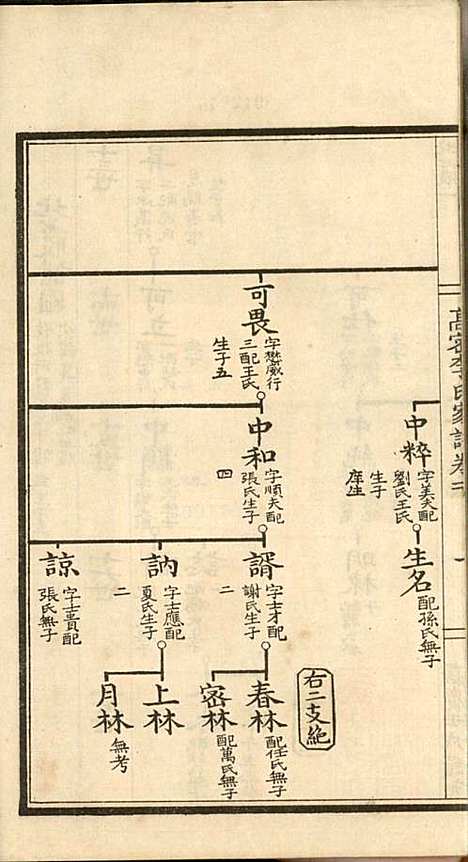 高密李氏家譜卷
中粹
字美夫配
劉氏王氏
生子
庠生
生名
配孫氏無子
右二支絶
可畏
字懋威行
三配王氏
生子五
中和
字順夫配
張氏生子
四
諝
字士才配
謝氏生子
二
春林
配任氏無子
密林
配萬氏無子
訥
字士應配
夏氏生子
二
上林
月林
無考
諒
字士貴配
張氏無子